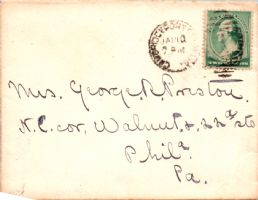 Mrs. George R. Preston.
N.E. cor. Walnut & 22ᵈ sts
Philᵃ
Pa.